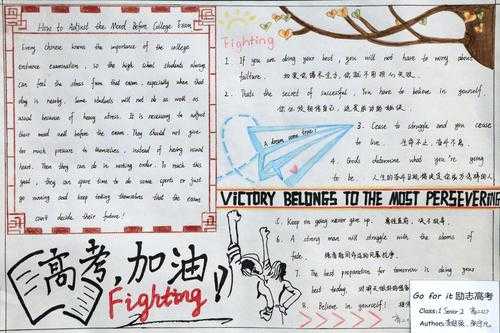 How to Adjust the Mood Before College Exam
Every Chinese knows the importance of the college
entrance examination, so the high school students always
can feel the stress from that exam, especially when that
day is nearby. Some students will not do as well as
usual because of heavy stress. It is necessary to adjust
their mood well before the exam. They should not give
too much pressure to themselves, instead of having usual
heart. Then they can do in working order. To reach this
goal, they can spare time to do some sports or just
go running and keep telling themselves that the exam
can't decide their future!
高考,加油!
Fighting
Fighting
1. If you are doing your best, you will not have to worry about
failture.
2. That's the secret of successful, You have to believe in yourself.
A dream come true!
3. Cease to struggle and you cease
to live. 生命不止,奋斗不息
4. Gods determine what you're going
to be.
VICTORY BELONGS TO THE MOST PERSEVERING
5. Keep on going never give up.
6. A strong man will struggle with the storms of
fate.
7. The best preparation for tomorrow is doing your
best today.
8. Believe in yourself!
Go for it 励志高考
Class: Senior 2
Author: